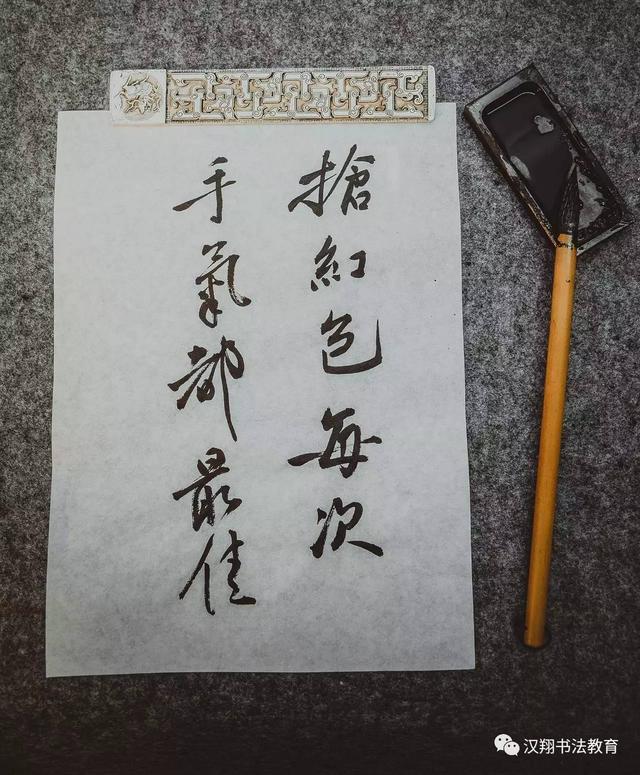 搶紅包每次
手氣都最佳
汉翔书法教育